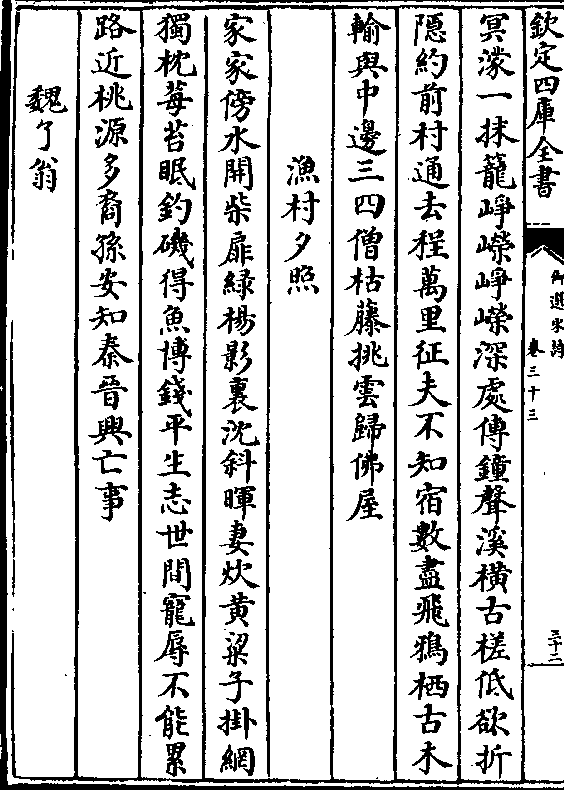 欽定四庫全書
御選宋詩
卷三十三
三十二
冥濛一抹籠崢嶸崢嶸深處傳鐘聲溪橫古槎低欲折
隱約前村通去程萬里征夫不知宿數盡飛鴉栖古木
輸與中邊三四僧枯藤挑雲歸佛屋
漁村夕照
家家傍水開柴扉緑楊影裏沈斜暉妻炊黄粱子掛網
獨枕莓苔眠釣磯得魚博錢平生志世間寵辱不能累
路近桃源多裔孫安知秦晉興亡事
魏了翁